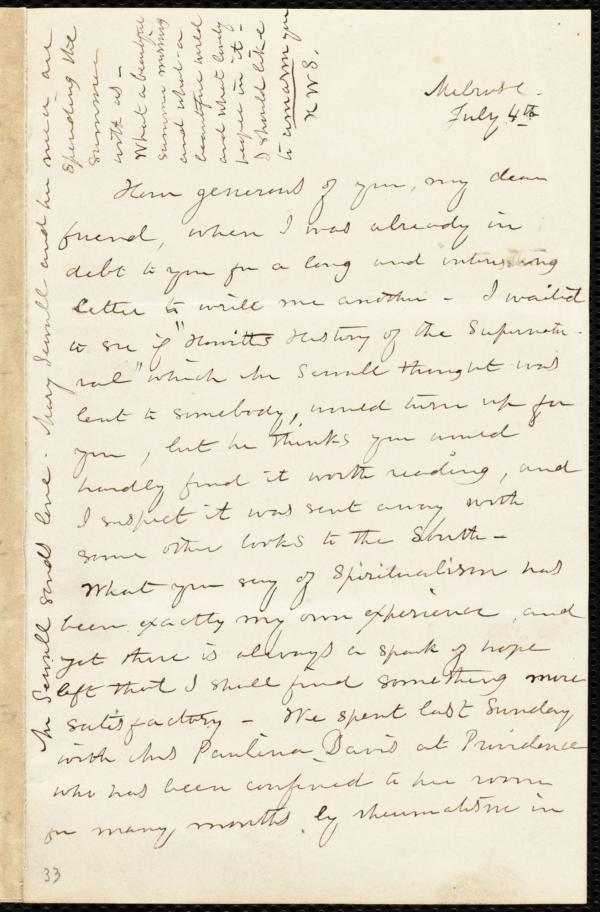 Melrose.
July 4th
How generous of you, my dear
friend, when I was already in
debt to you for a long and interesting
letter to write me another - I waited
to see if "Howitts History of the Supernatu-
ral" which Mr Sewall thought was
lent to somebody, would turn up for
you, but he thinks you would
hardly find it worth reading, and
I suspect it was sent away with
some other books to the South -
What you say of Spiritualism has
been exactly my own experience, and
yet there is always a spark of hope
left that I shall find something more
satisfactory - We spent last Sunday
with Mrs Paulina Davis at Providence
who has been confined to her room
for many months by rheumatism in
Mr Sewall sends love. Mary Sewall and her niece are
spending the
summer
with us -
What a beautiful
summer morning
and what a
beautiful world
and what lovely
people in it -
I should like
to unarm you
33